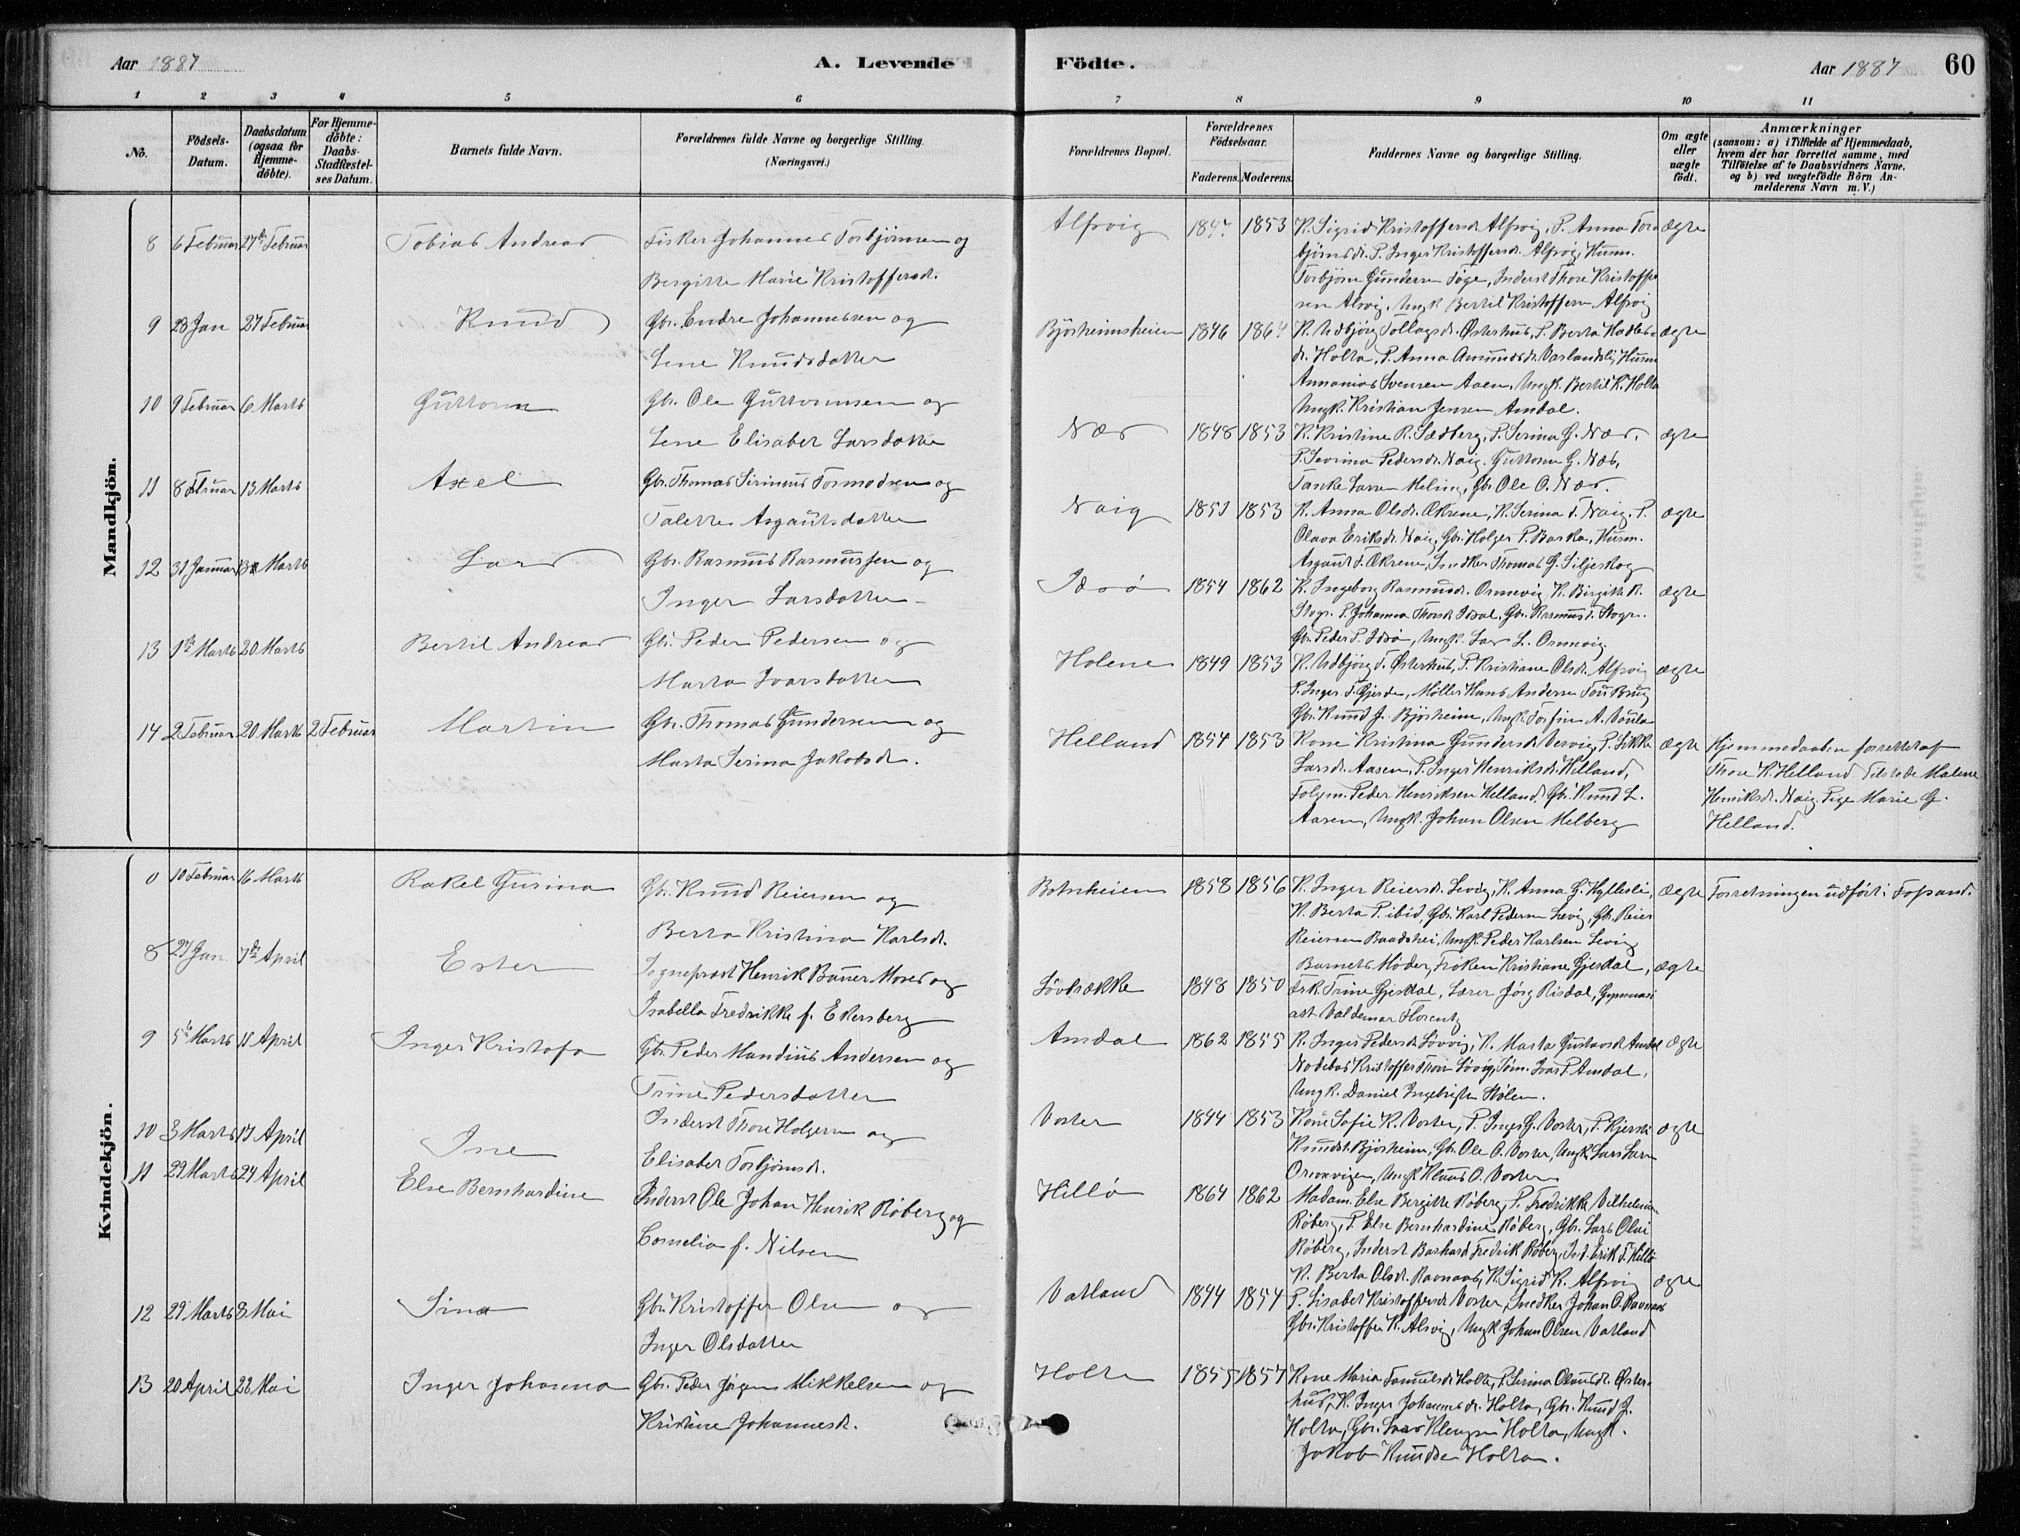 Aar 1887
A. Levende
Födte.
Aar 1887
60
1 2 3 4 5 6 7 8 9 10 11
No.
Födsels-Datum.
Daabsdatum (ogsaa for Hjemme-döbte).
For Hjemme-döbte: Daabs-Stadfæstel-ses Datum.
Barnets fulde Navn.
Forældrenes fulde Navne og borgerlige Stilling.
(Næringsvei.)
Forældrenes Bopæl.
Forældrenes Födselsaar.
Faderens. Moderens.
Faddernes Navne og borgerlige Stilling.
Om ægte eller uægte födt.
Anmærkninger
(saasom: a) i Tilfælde af Hjemmedaab, hvem der har forrettet samme, med Tilföielse af to Daabsvidners Navne, og b) ved uægtefödte Börn An-melderens Navn m. V.)
Mandkjön.
8 6 Februar 27de Februar Tobias Andreas Fisker Johannes Torbjörnsen og
Bergitte Marie Kristoffersdr.
Alfsvig 1847 1853 K. Sigrid Kristoffersdr Alfsvig, P. Anna Tor ægte
björnsdr. P. Inger Kristoffersdr. Alfsvig, Husm.
Torbjörn Gundersen Töge, Inderst Thore Kristoffer
sen Alsvig, Ungk Bertil Kristoffersen Alfsvig
9 28 Jan 27 Februar Knud Gbr. Endre Johannessen og
Lene Knudsdatter
Björheimsheien 1846 1864 K. Udbjörg Tollagsdr. Østerhus, P. Berta Kadlets ægte
dr. Holta, P. Anna Amundsdr Varlandsli, Husm
Annanias Svensen Aaen, Ungk. Bertil K. Holta
Ungk. Kristian Jensen Amdal.
10 9 Februar 6 Marts Guttorm Gbr. Ole Guttormsen og
Lene Elisabet Larsdatter
Næs 1848 1853 K. Kristine R. Sædberg, P. Serina G. Næs, ægte
P. Severina Pedersdr. Naig, Guttorm G. Næs,
Tanke Larsen Meling, Gbr. Ole O. Næs.
11 8 Februar 13 Marts Axel Gbr. Thomas Sirinius Tormodsen og
Talette Asgautsdatter
Naig 1851 1853 K. Anna Olsdr. Økrene, K. Serina T. Naig, P. ægte
Olava Eriksdr. Naig, Gbr. Holger P. Barka, Husm.
Asgaut T. Økrene, Snedker Thomas G. Siljeskog
12 31 Januar 13 Marts Lars Gbr. Rasmus Rasmussen og
Inger Larsdatter
Idsö 1854 1862 K. Ingeborg Rasmusdr. Ormevig K. Birgitte R. ægte
Gbr. Peder P. Idsö, Ungk. Lars L. Ormevig
13 1ste Marts 20 Marts Bertil Andreas Gbr. Peder Pedersen og
Marta Ivarsdatter
Holene 1849 1853 K. Udbjörg T. Østerhus, P. Kristiane Olsdr. Alfsvig ægte
P. Inger T. Gjerde, Möller Hans Andersen Tou Brug
Gbr. Knud J. Björheim, Ungk. Torfin A. Voula
14 2 Februar 20 Marts 2 Februar Martin Gbr. Thomas Gundersen og
Marta Serina Jakobsdr.
Helland 1854 1853 Kone Kristina Gundersdr Vervig, P. Sikke ægte Hjemmedaaben forrettet af
Larsdr. Aasen, P. Inger Henriksdr. Helland, Thore K. Helland Tilstede Malene
Folgm. Peder Henriksen Helland, Gbr. Knud L. Henriksdr. Naig, Pige Marie G.
Aasen, Ungk. Johan Olsen Melberg Helland.
Kvindekjön.
0 10 Februar 16 Marts Rakel Gurina Gbr. Knud Reiersen og
Berta Kristina Karlsdr.
Botnheien 1858 1856 K. Inger Reiersdr. Levig, K. Anna G. Hyllesli, ægte Forretningen udfört i Fossand.
K. Berta P. ibid, Gbr. Karl Pedersen Levig, Gbr. Reier
Reiersen Baadshei, Ungk. Peder Karlsen Levig
8 27 Jan 7de April Ester Sogneprest Henrik Bauer Moses og
Isabella Fredrikke f. Ekersberg
Lövbrække 1848 1850 Barnets Moder, Fröken Kristiane Gjesdal, ægte
Frk. Trine Gjesdal, Lærer Jörg Risdal, Gymnasi
ast Valdemar Florentz
9 5te Marts 11 April Inger Kristofa Gbr. Peder Mandius Andersen og
Trine Pedersdatter
Amdal 1862 1855 K. Inger Pedersdr Lövvig, K. Marta Gustavsdr Amdal ægte
Ungk. Daniel Ingebritsen Hölen.
10 3 Marts 17 April Ine Inderst Thore Holgersen og
Elisabet Torbjörnsdr.
Voster 1844 1853 Kone Sofie K. Voster, P. Inger G. Voster, P. Kjersti ægte
Knudsdr Björheim, Gbr. Ole O. Voster, Ungk Lars Larsen
Ormevigen, Ungk Klaus O. Voster
11 29 Marts 24 April Else Bernhardine Inderst Ole Johan Henrik Röberg og
Cornelia f. Nilsen
Hillö 1864 1862 Madam. Else Bergitte Röberg, P. Fredrikke Vilhelmine
Röberg, P. Else Bernhardine Röberg, Gbr. Lars Olai
Röberg, Inderst Barhard Fredrik Röberg, Ind. Erik T. Hillö
12 29 Marts 8 Mai Sina Gbr. Kristoffer Olsen og
Inger Olsdatter
Vatland 1844 1854 K. Berta Olsdr. Ravnaas, K. Sigrid K. Alfsvig ægte
P. Lisabet Kristoffersdr Voster, Snedker Johan O. Ravnaas
Gbr. Kristoffer K. Alsvig, Ungk Johan Olsen Vatland
13 20 April 22 Mai Inger Johanna Gbr. Peder Jörgen Mikkelsen og
Kristine Johannesdr.
Holta 1855 1857 Kone Maria Samuelsdr Holta, P. Serina Olausdr. Øster-
hus, K. Inger Johannesdr. Holta, Gbr. Knud J.
Holta, Gbr. Lars Klengsen Holta, Ungk.
Jakob Knudsen Holta.